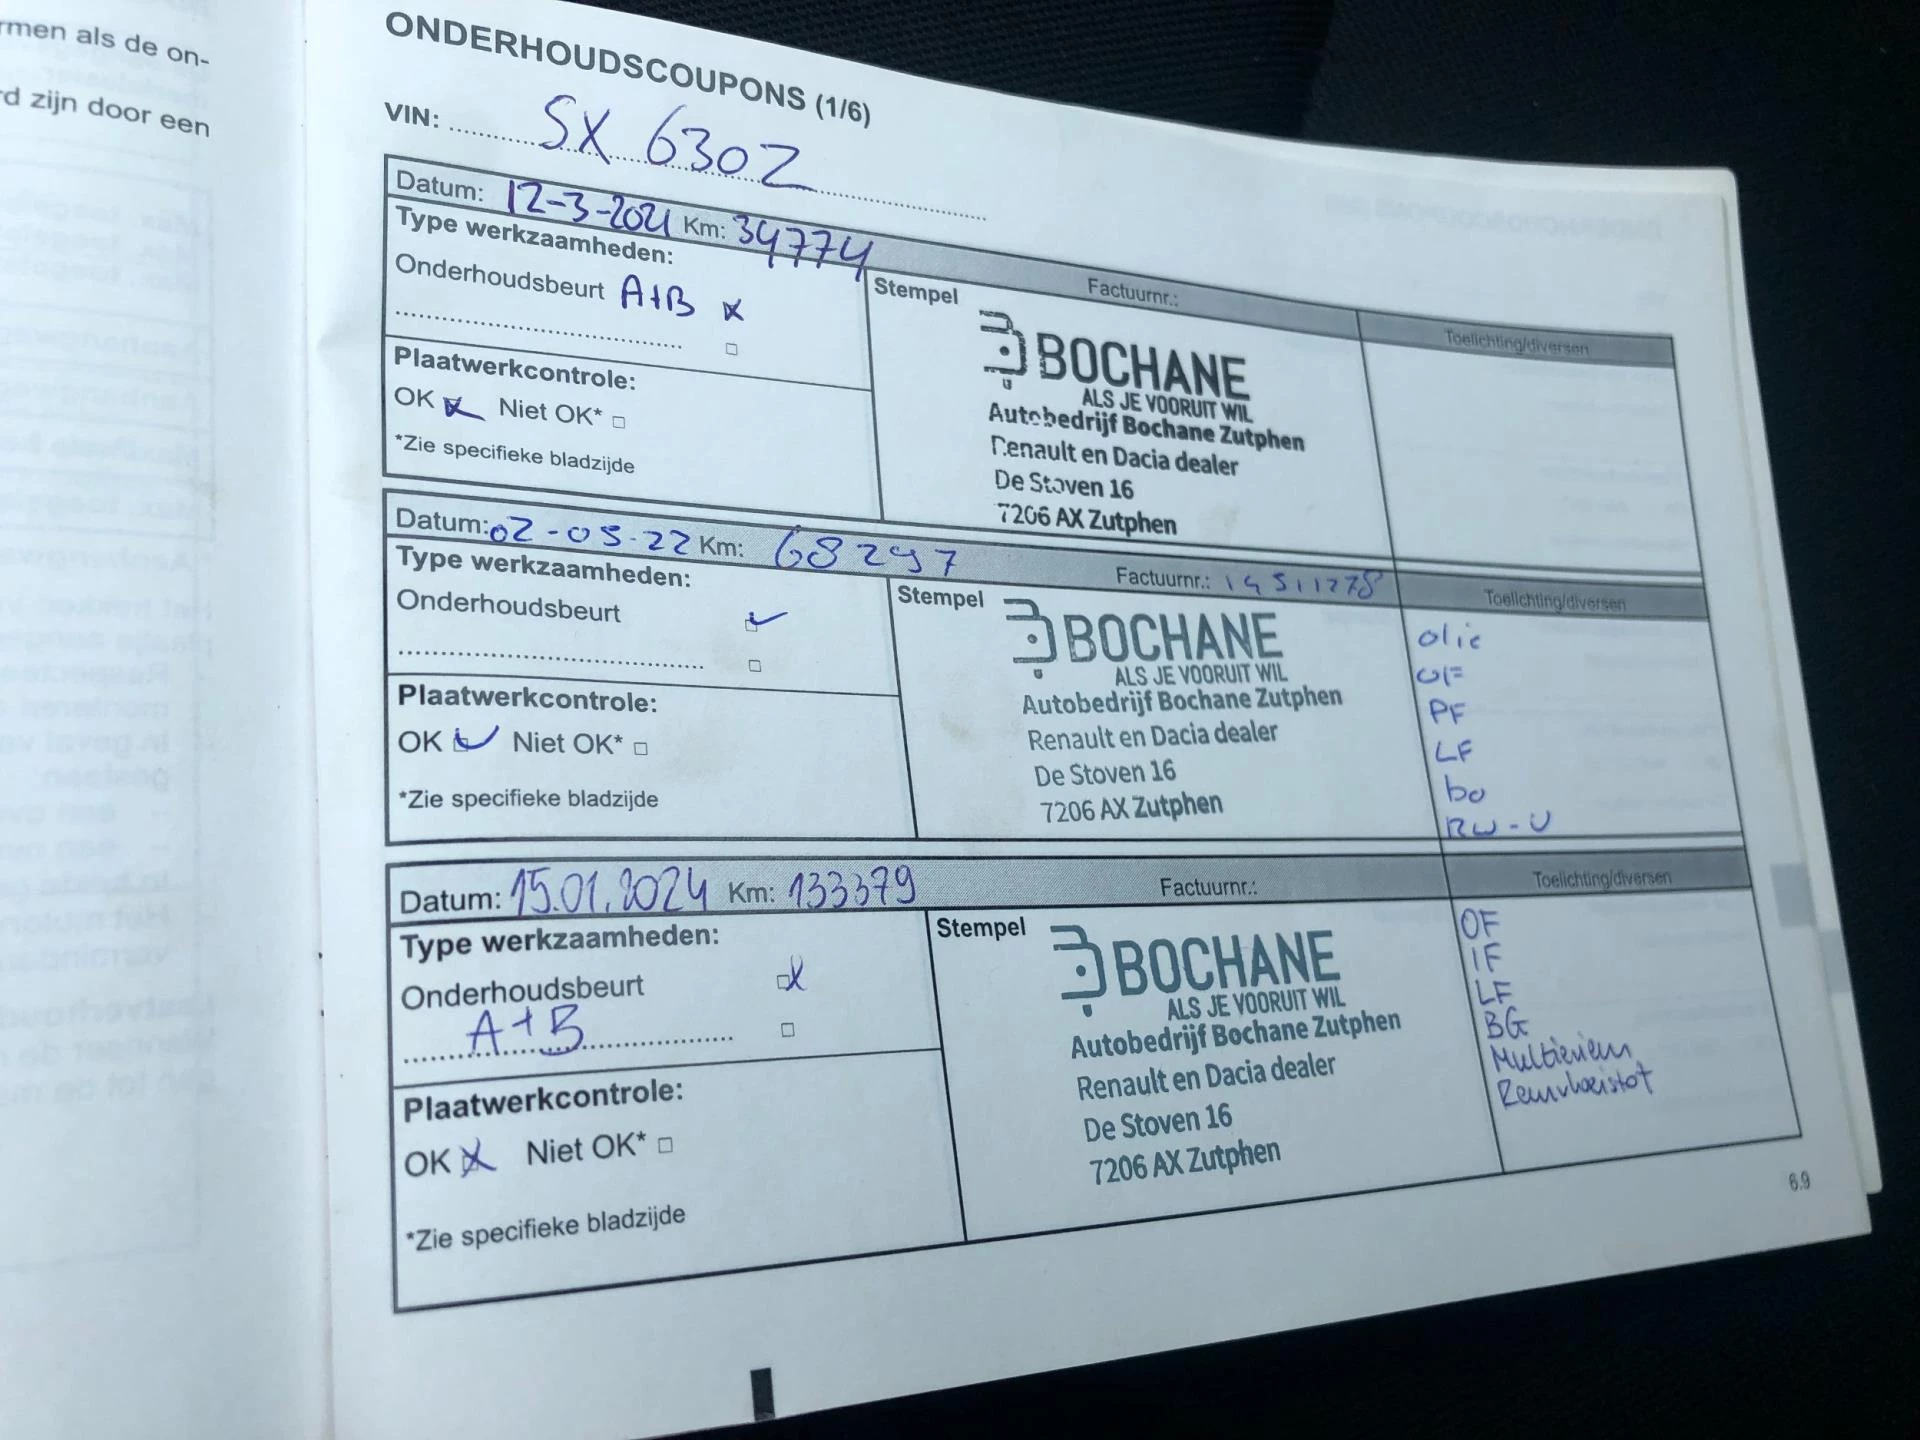 rmen als de on-
rd zijn door een
ONDERHOUDSCOUPONS (1/6)
VIN: SX 630Z
Datum: 12-3-2021 Km: 34774 Factuurnr.: Toelichting/diversen
Type werkzaamheden:
Onderhoudsbeurt A+B
Plaatwerkcontrole:
OK Niet OK*
*Zie specifieke bladzijde
Stempel
BOCHANE
ALS JE VOORUIT WIL
Autobedrijf Bochane Zutphen
Renault en Dacia dealer
De Stoven 16
7206 AX Zutphen
Datum: 02-05-22 Km: 68297 Factuurnr.: Toelichting/diversen
Type werkzaamheden:
Onderhoudsbeurt
Plaatwerkcontrole:
OK Niet OK*
*Zie specifieke bladzijde
Stempel
BOCHANE
ALS JE VOORUIT WIL
Autobedrijf Bochane Zutphen
Renault en Dacia dealer
De Stoven 16
7206 AX Zutphen
olie
OF
PF
LF
bo
RW-V
Datum: 15.01.2024 Km: 133379 Factuurnr.: Toelichting/diversen
Type werkzaamheden:
Onderhoudsbeurt
A+B
Plaatwerkcontrole:
OK Niet OK*
*Zie specifieke bladzijde
Stempel
BOCHANE
ALS JE VOORUIT WIL
Autobedrijf Bochane Zutphen
Renault en Dacia dealer
De Stoven 16
7206 AX Zutphen
OF
IF
LF
BG
Multiriem
Remvloeistof
6.9